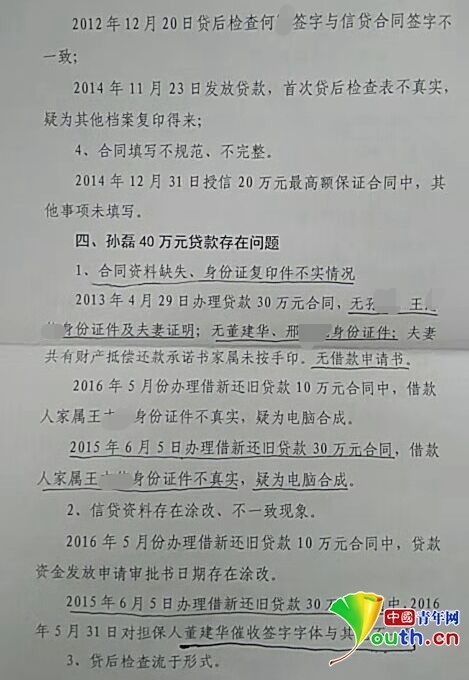 2012年12月20日贷后检查何 签字与信贷合同签字不
一致；
2014年11月23日发放贷款，首次贷后检查表不真实，
疑为其他档案复印得来；
4、合同填写不规范、不完整。
2014年12月31日授信20万元最高额保证合同中，其
他事项未填写。
四、孙磊40万元贷款存在问题
1、合同资料缺失、身份证复印件不实情况
2013年4月29日办理贷款30万元合同，无孙 王
身份证件及夫妻证明；无董建华、邢 身份证件；夫妻
共有财产抵偿还款承诺书家属未按手印。无借款申请书。
2016年5月份办理借新还旧贷款10万元合同中，借款
人家属王 身份证件不真实，疑为电脑合成。
2015年6月5日办理借新还旧贷款30万元合同，借款
人家属王 身份证件不真实，疑为电脑合成。
2、信贷资料存在涂改、不一致现象。
2016年5月份办理借新还旧贷款10万元合同中，贷款
资金发放申请审批书日期存在涂改。
2015年6月5日办理借新还旧贷款30万 中，2016
年5月31日对担保人董建华催收签字字体与其 不
3、贷后检查流于形式。
中国青年网
Youth.cn